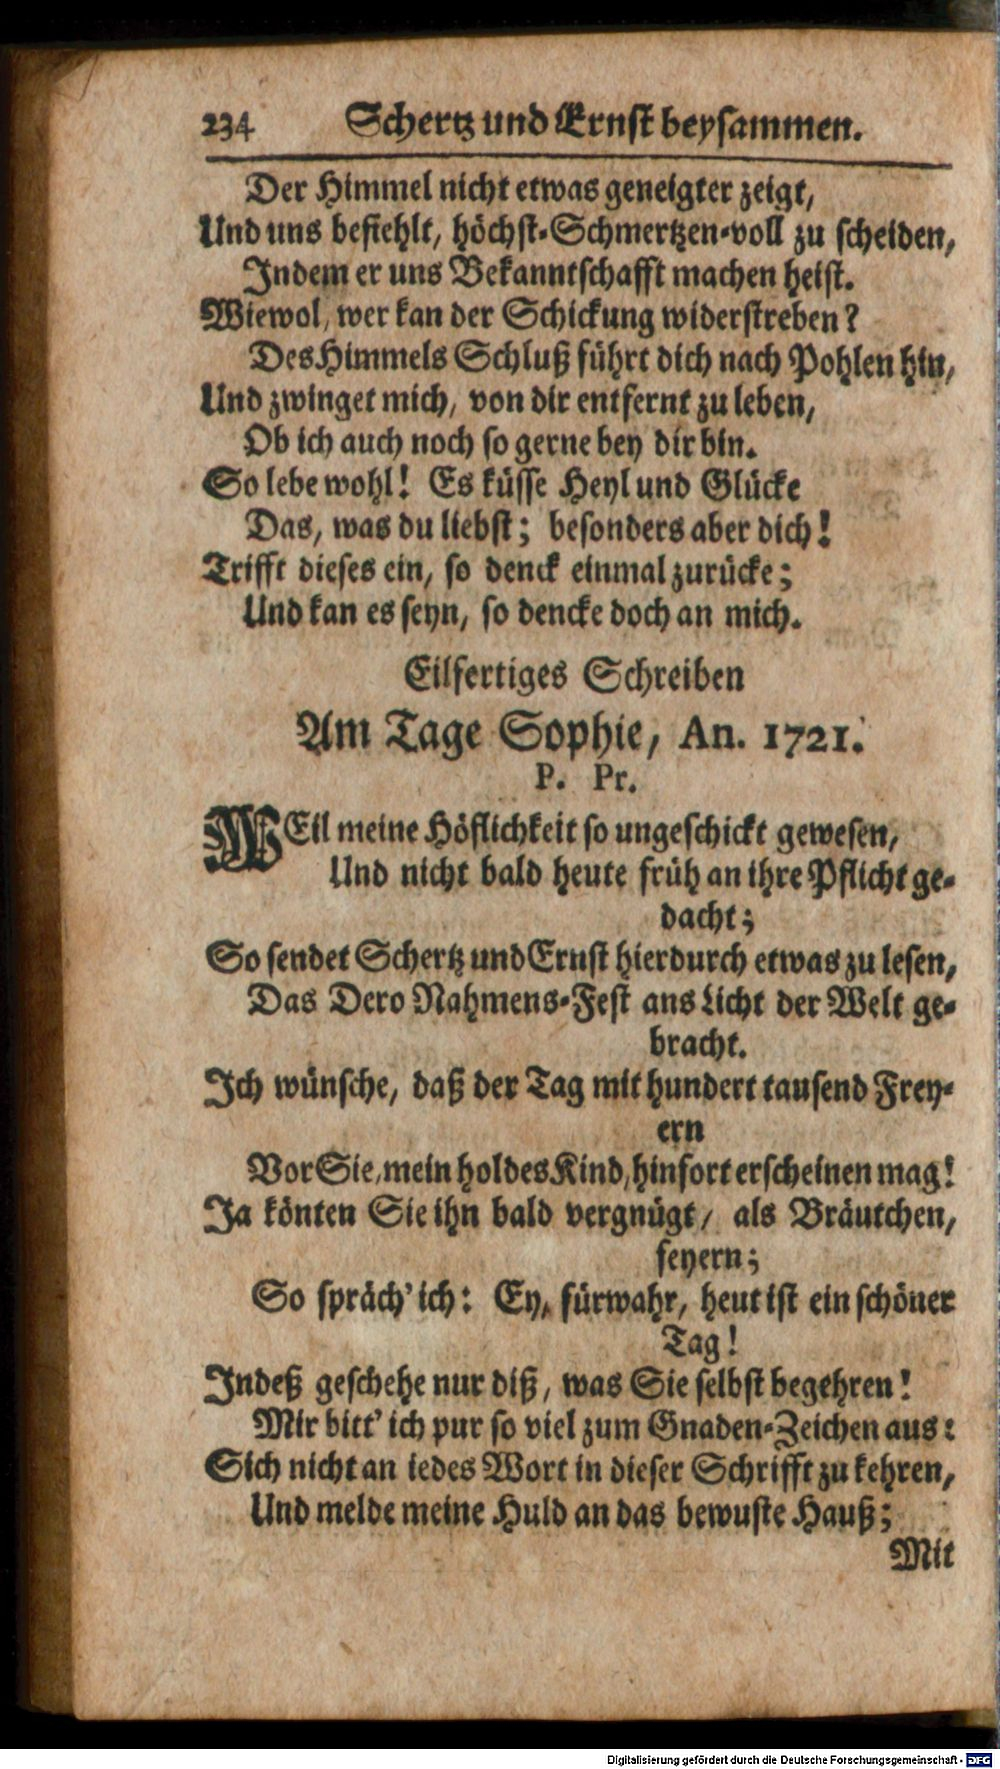 234 Schertz und Ernst beysammen.
Der Himmel nicht etwas geneigter zeigt,
Und uns befiehlt, höchst-Schmertzen-voll zu scheiden,
Indem er uns Bekanntschafft machen heist.
Wiewol, wer kan der Schickung widerstreben?
Des Himmels Schluß führt dich nach Pohlen hin,
Und zwinget mich, von dir entfernt zu leben,
Ob ich auch noch so gerne bey dir bin.
So lebe wohl! Es küsse Heyl und Glücke
Das, was du liebst; besonders aber dich!
Trifft dieses ein, so denck einmal zurücke;
Und kan es seyn, so dencke doch an mich.
Eilfertiges Schreiben
Am Tage Sophie, An. 1721.
P. Pr.
WEil meine Höflichkeit so ungeschickt gewesen,
Und nicht bald heute früh an ihre Pflicht ge-
dacht;
So sendet Schertz und Ernst hierdurch etwas zu lesen,
Das Dero Nahmens-Fest ans Licht der Welt ge-
bracht.
Ich wünsche, daß der Tag mit hundert tausend Frey-
ern
Vor Sie, mein holdes Kind, hinfort erscheinen mag!
Ja könten Sie ihn bald vergnügt, als Bräutchen,
feyern;
So spräch' ich: Ey, fürwahr, heut ist ein schöner
Tag!
Indeß geschehe nur diß, was Sie selbst begehren!
Mir bitt' ich pur so viel zum Gnaden-Zeichen aus:
Sich nicht an iedes Wort in dieser Schrifft zu kehren,
Und melde meine Huld an das bewuste Hauß;
Mit
Digitalisierung gefördert durch die Deutsche Forschungsgemeinschaft - DFG